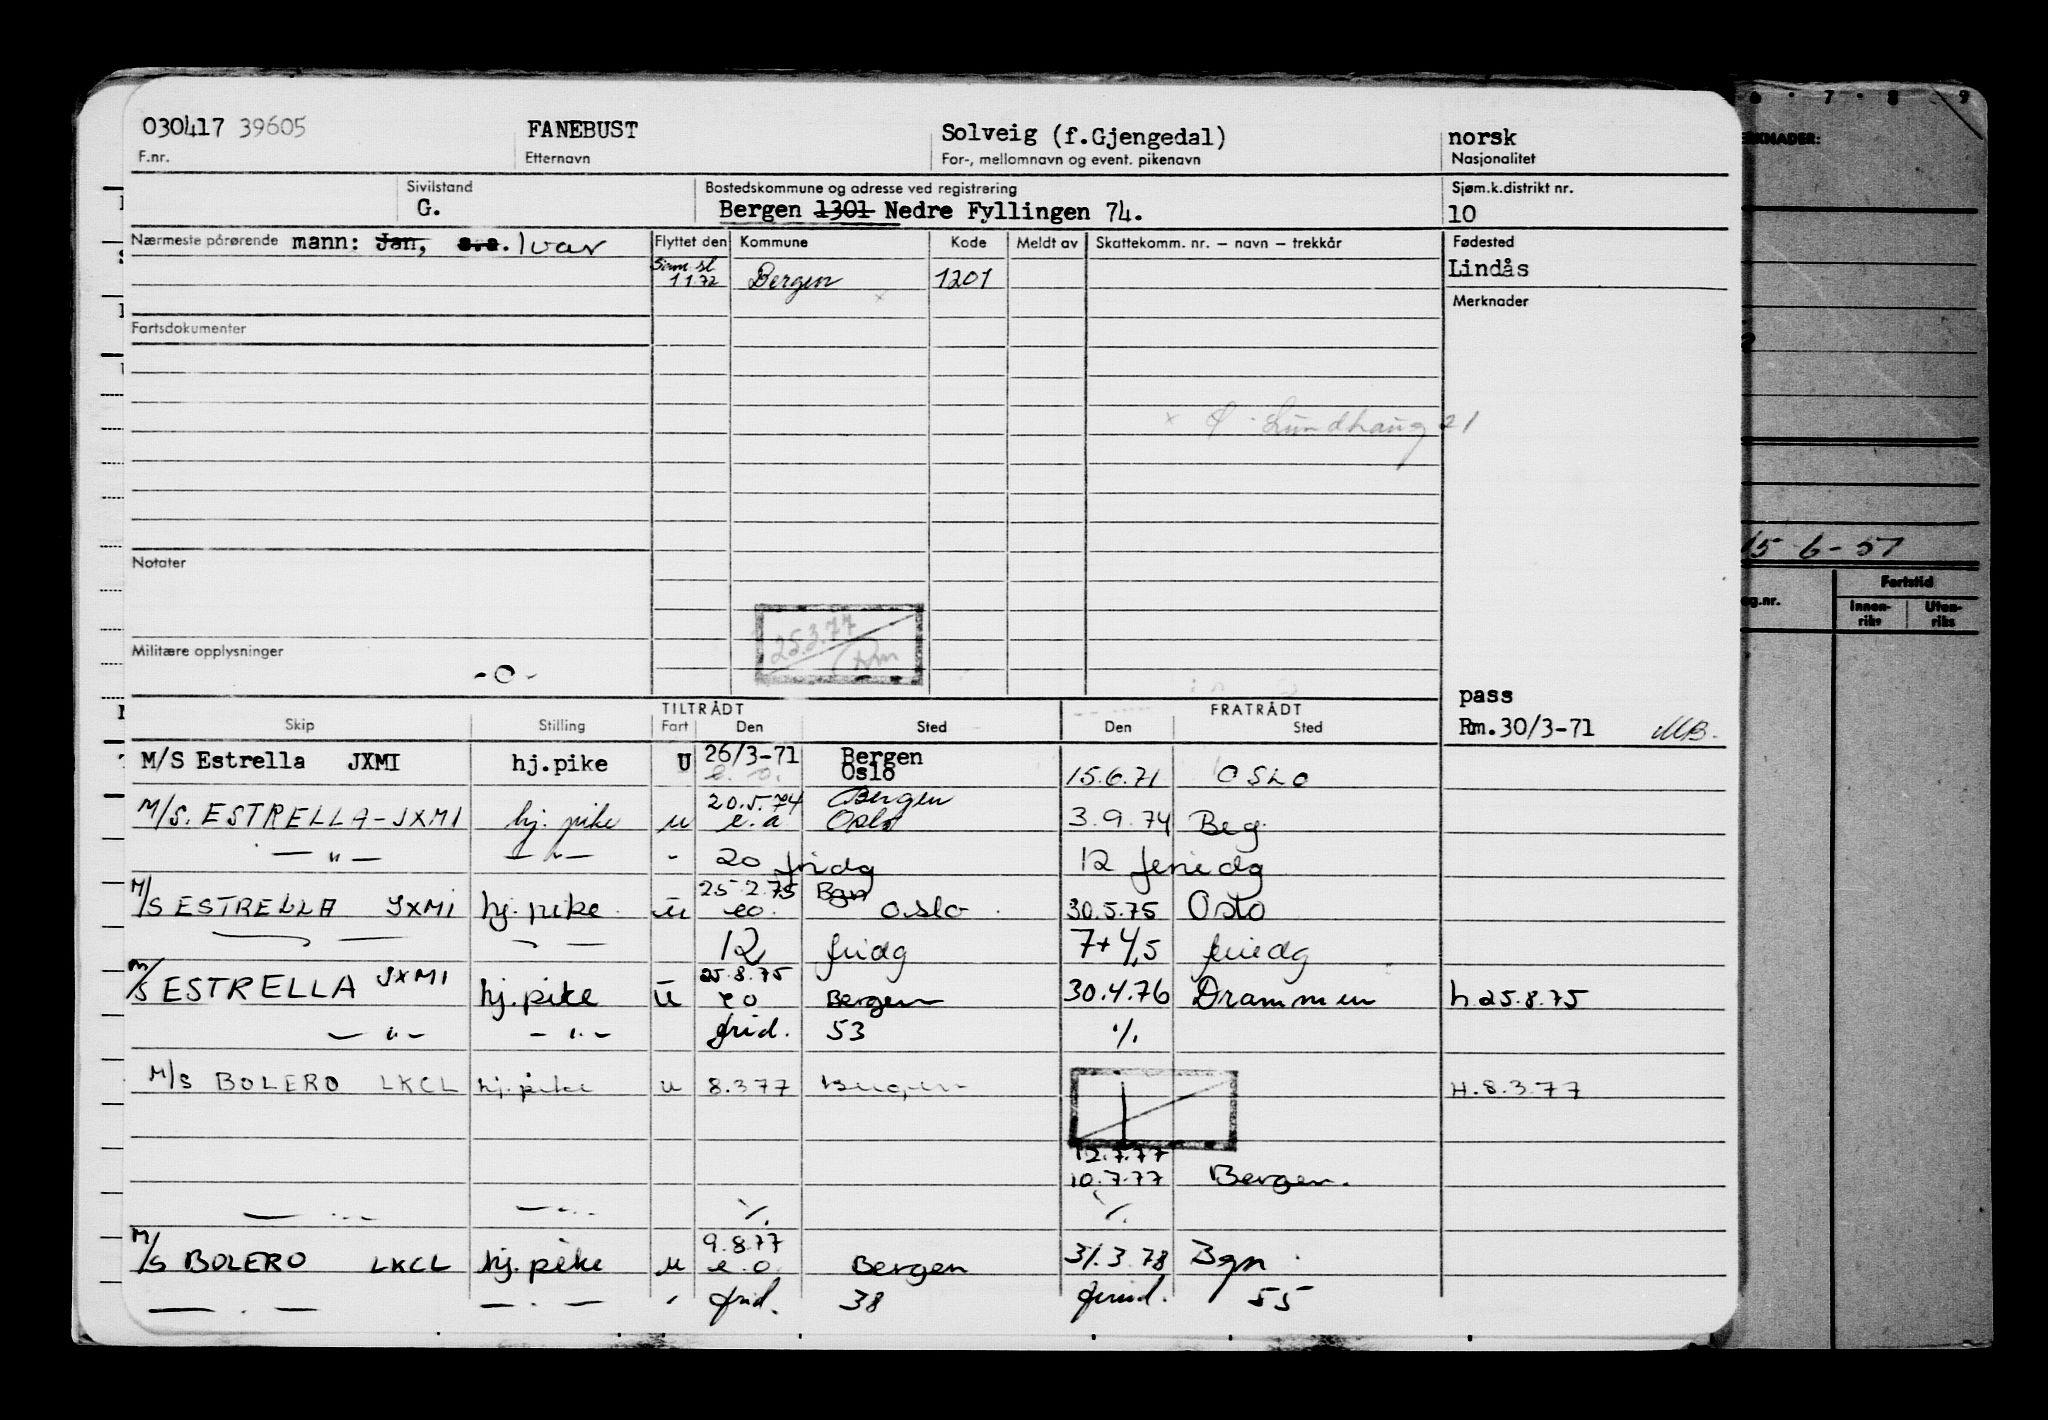 030417 39605 FANEBUST Solveig (f.Gjengedal) norsk
F.nr. Etternavn For-, mellomnavn og event. pikenavn Nasjonalitet
Sivilstand Bostedskommune og adresse ved registrering Sjøm.k.distrikt nr.
G. Bergen 1301 Nedre Fyllingen 74. 10
Nærmeste pårørende mann: Jan, s.a. Ivar Flyttet den Kommune Kode Meldt av Skattekomm. nr. – navn – trekkår Fødested
1 1.72 Bergen 1201 Lindås
Merknader
Fartsdokumenter
x Lundhaug 21
Notater
25.3.77
Militære opplysninger
-O-
pass
TILTRÅDT FRATRÅDT
Skip Stilling Fart Den Sted Den Sted Rm.30/3-71 MB.
M/S Estrella JXMI hj.pike U 26/3-71 Bergen
e.o. Oslo 15.6.71 OSLO
20.5.74 Bergen
M/S. ESTRELLA-JXMI hj. pike u e.a Oslo 3.9.74 Beg.
— " — — " — - 20 fridg 12 feriedg
25 2.75 Bgn
M/S ESTRELLA JXMI hj. pike. u eo. oslo. 30.5.75 Oslo
12 fridg 7+4,5 feriedg
25.8.75
M/S ESTRELLA JXMI hj. pike u eo Bergen 30.4.76 Drammen h.25.8.75
— " — — " — frid. 53 ./.
M/S BOLERO LKCL hj. pike u 8.3.77 Bergen H.8.3.77
12.7.77
10.7.77 Bergen.
— " — — " — ./. ./.
9.8.77
M/S BOLERO LKCL hj. pike u e.o. Bergen 31.3.78 Bgn.
— . — — . — frid. 38 55
6 7 8 9
RKNADER:
15-6-57
Fartstid
eg.nr. Innen-riks Uten-riks